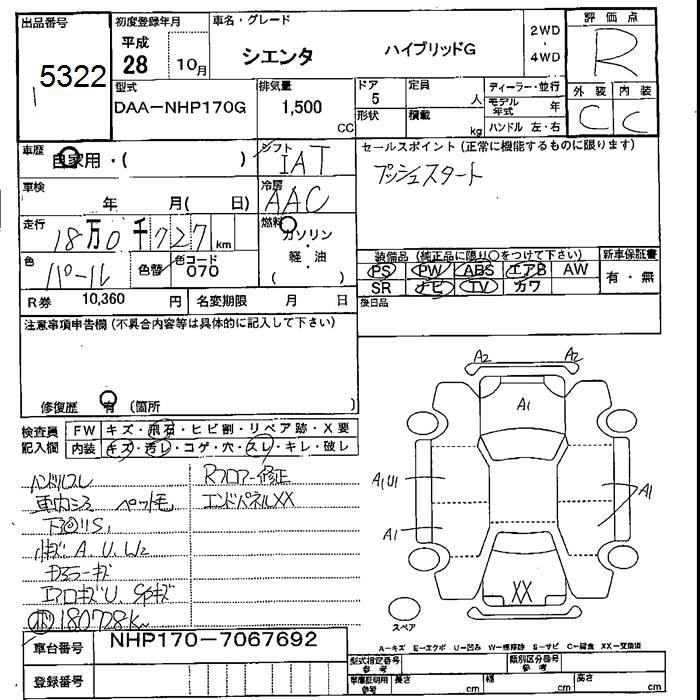 出品番号
5322
初度登録年月
平成
28 10月
車名・グレード
シエンタ ハイブリッドG
2WD
・
4WD
評価点
R
型式
DAA-NHP170G
排気量
1,500
CC
ドア
5
形状
定員
人
積載
kg
ディーラー・並行
モデル年式 年
ハンドル 左・右
外装 内装
C C
車歴
自家用・( )
シフト
IAT
セールスポイント(正常に機能するものに限ります)
プッシュスタート
車検
年 月( 日)
冷房
AAC
走行
18万0千727km
燃料
ガソリン
・
軽・油
( )
色
パール
色替
色コード
070
装備品(純正品に限り○をつけて下さい)
PS PW ABS エアB AW
SR ナビ TV カワ
新車保証書
有・無
R券 10,360 円
名変期限 月 日
後日品
注意事項申告欄(不具合内容等は具体的に記入して下さい)
修復歴 有 (箇所 )
検査員
記入欄
FW キズ・飛石・ヒビ割・リペア跡・X要
内装 キズ・汚レ・コゲ・穴・スレ・キレ・破レ
ハンドルスレ
車内シミ ペット毛
下回りS1
A、U、W2
エアロキズU、
180728K
Rフロアー修正
エンドパネルXX
A2 A2
A1
A1U1
A1
A1
XX
スペア
A-キズ E-エクボ U-凹み W-修理跡 S-サビ C-腐食 XX-交換済
車台番号 NHP170-7067692
登録番号
型式指定番号
参考
類別区分番号
参考
車庫証明用
参考
長さ cm
幅 cm
高さ cm